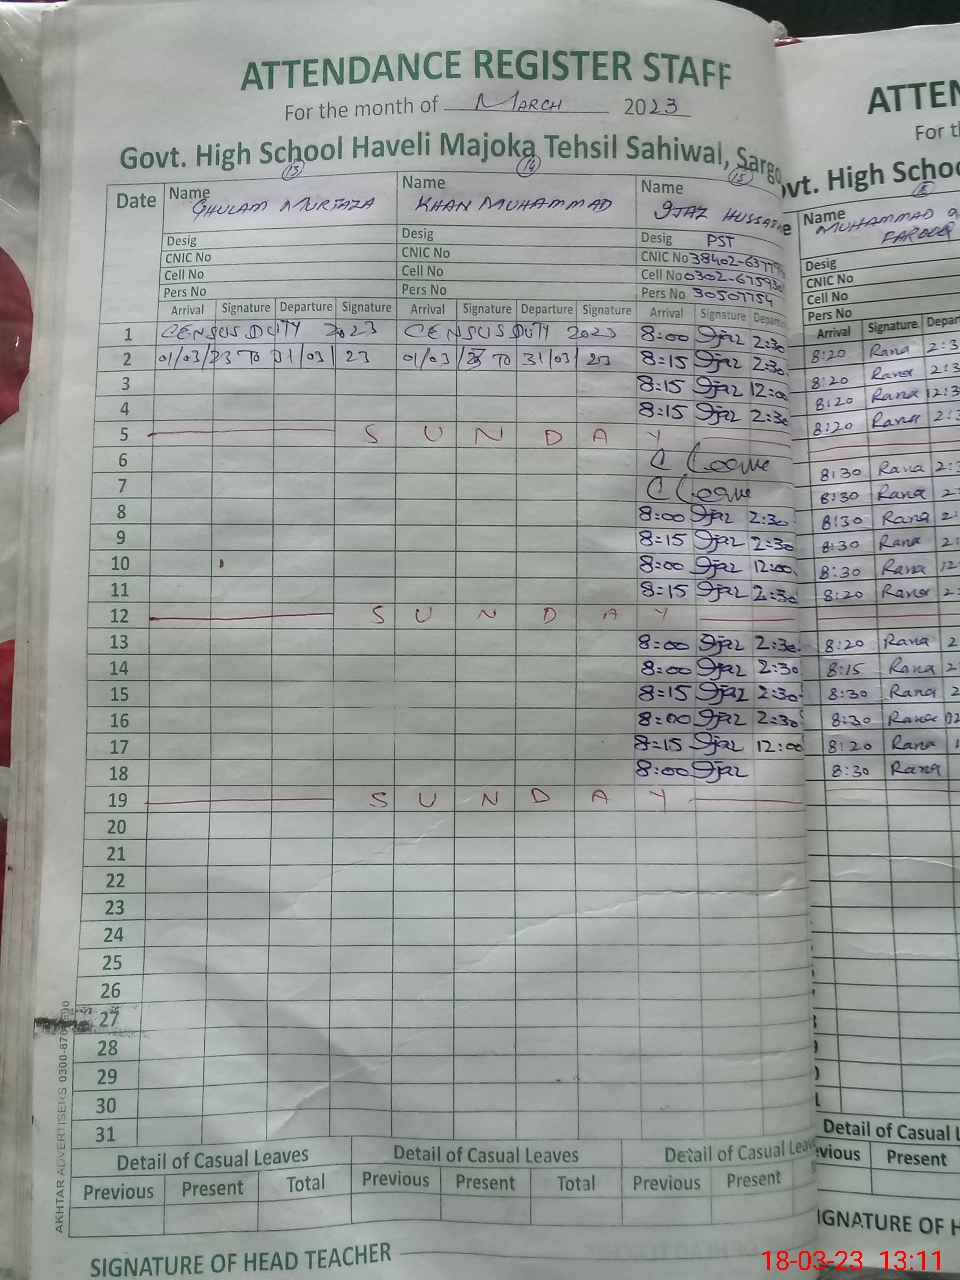 ATTENDANCE REGISTER STAFF
For the month of MARCH 2023
Govt. High School Haveli Majoka Tehsil Sahiwal, Sargo
13 14 15
Date Name GHULAM MURTAZA Name KHAN MUHAMMAD Name IJAZ HUSSAIN
Desig Desig Desig PST
CNIC No CNIC No CNIC No 38402-637
Cell No Cell No Cell No 0302-6759
Pers No Pers No Pers No 30507754
Arrival Signature Departure Signature Arrival Signature Departure Signature Arrival Signature Departu
1 CENSUS DUTY 2023 CENSUS DUTY 2023 8:00 Ijaz 2:30
2 01/03/23 TO 31/03/23 01/03/23 TO 31/03/23 8:15 Ijaz 2:30
3 8:15 Ijaz 12:00
4 8:15 Ijaz 2:30
5 S U N D A Y
6 C Leave
7 C Leave
8 8:00 Ijaz 2:30
9 8:15 Ijaz 2:30
10 8:00 Ijaz 12:00
11 8:15 Ijaz 2:30
12 S U N D A Y
13 8:00 Ijaz 2:30
14 8:00 Ijaz 2:30
15 8:15 Ijaz 2:30
16 8:00 Ijaz 2:30
17 8:15 Ijaz 12:00
18 8:00 Ijaz
19 S U N D A Y
20
21
22
23
24
25
26
27
28
29
30
31
Detail of Casual Leaves Detail of Casual Leaves Detail of Casual Leave
Previous Present Total Previous Present Total Previous Present
SIGNATURE OF HEAD TEACHER
AKHTAR ADVERTISERS 0300-870
ATTEN
For t
ovt. High Schoo
Name MUHAMMAD
FAROOQ
Desig
CNIC No
Cell No
Pers No
Arrival Signature Depar
8:20 Rana 2:3
8:20 Rana 2:3
8:20 Rana 12:3
8:20 Rana 2:3
8:30 Rana 2:3
8:30 Rana 2
8:30 Rana 2:
8:30 Rana 2:
8:30 Rana 12
8:20 Rana 2:
8:20 Rana 2
8:15 Rana 2
8:30 Rana 2
8:30 Rana 02
8:20 Rana 1
8:30 Rana
Detail of Casual L
evious Present
IGNATURE OF H
18-03-23 13:11